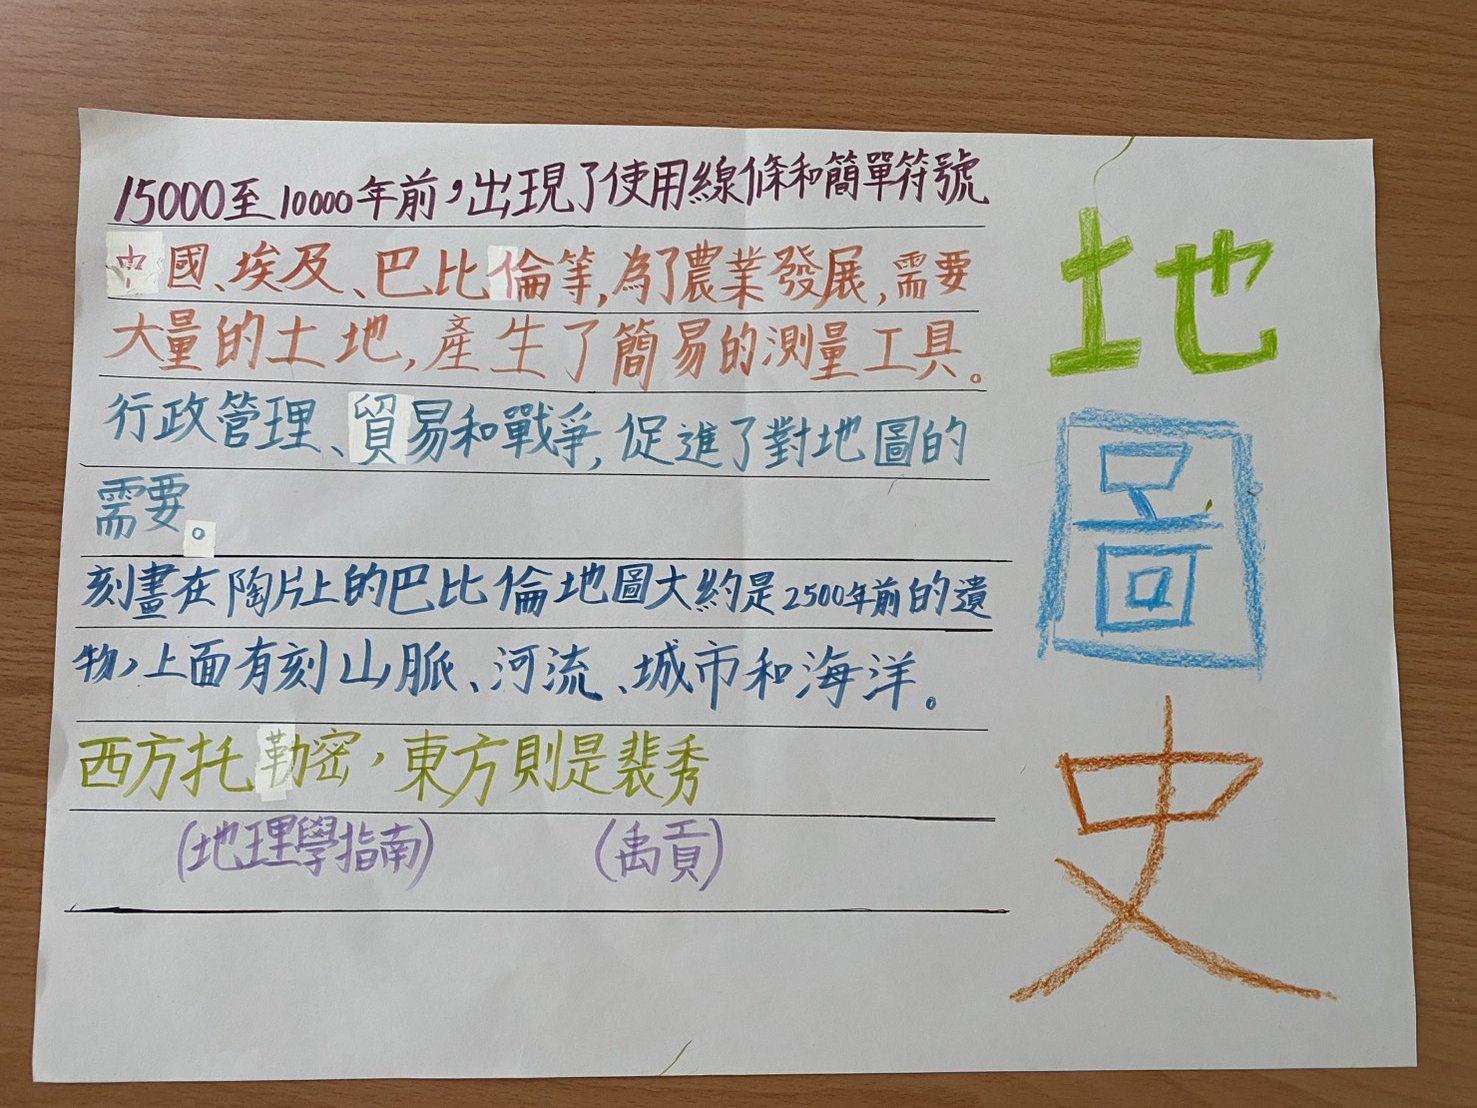 15000至10000年前,出現了使用線條和簡單符號
中國、埃及、巴比倫等,為了農業發展,需要
大量的土地,產生了簡易的測量工具。
行政管理、貿易和戰爭,促進了對地圖的
需要。
刻畫在陶片上的巴比倫地圖大約是2500年前的遺
物,上面有刻山脈、河流、城市和海洋。
西方托勒密,東方則是裴秀
(地理學指南) (禹貢)
地
圖
史